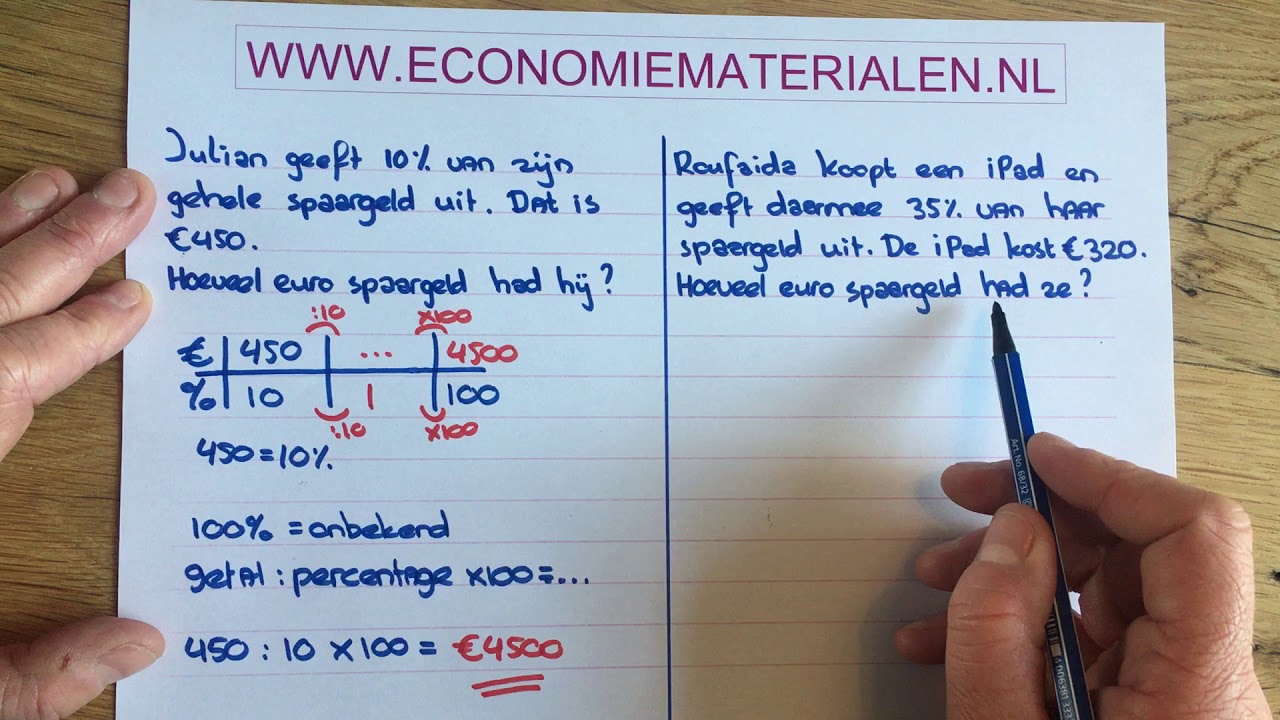 WWW.ECONOMIEMATERIALEN.NL
Julian geeft 10% van zijn
gehele spaargeld uit. Dat is
€450.
Hoeveel euro spaargeld had hij?
:10 x100
€ 450 ... 4500
% 10 1 100
:10 x100
450 = 10%
100% = onbekend
getal : percentage x100 = ...
450 : 10 x 100 = €4500
Roufaida koopt een iPad en
geeft daarmee 35% van haar
spaargeld uit. De iPad kost €320.
Hoeveel euro spaargeld had ze?
Art. No. 68/32
4 006381 333